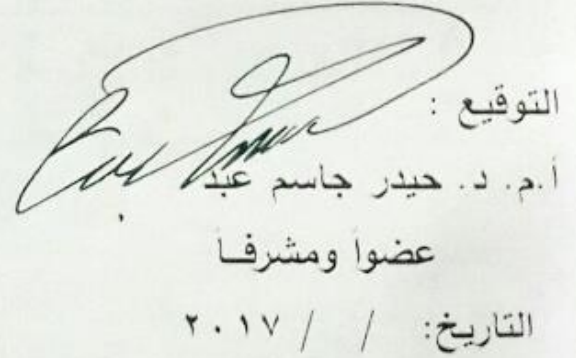 التوقيع :
أ.م. د. حيدر جاسم عبد
عضواً ومشرفاً
التاريخ: / / ٢٠١٧